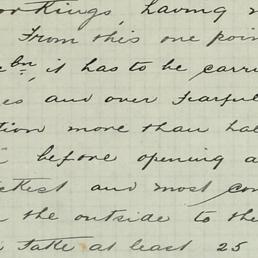 workings, having
From this one poin
it has to be carri
es and over fearful
tion more than hal
before opening a
and most con
the outside to the
at least 25